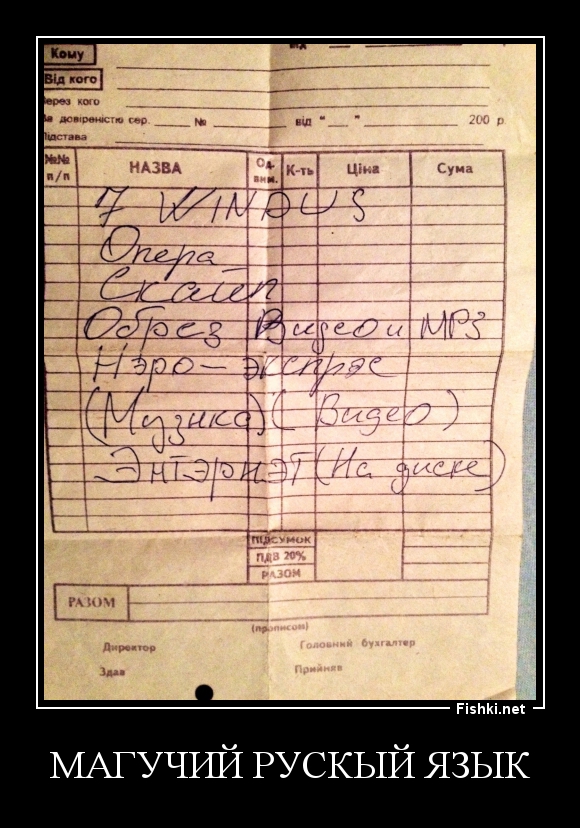 Кому
Від кого
Через кого
За довіреністю сер. ____ № ____ від "__" ____ 200 р
Підстава
№№ п/п НАЗВА Од. вим. К-ть Ціна Сума
7 WINDUS
Опера
Скайп
Обрез Видео и MP3
Нэро - экспрэс
(Музика) (Видео)
Энтэрнэт (На диске)
ПІДСУМОК
ПДВ 20%
РАЗОМ
РАЗОМ
(прописом)
Директор Головний бухгалтер
Здав Прийняв
Fishki.net
МАГУЧИЙ РУСКЫЙ ЯЗЫК